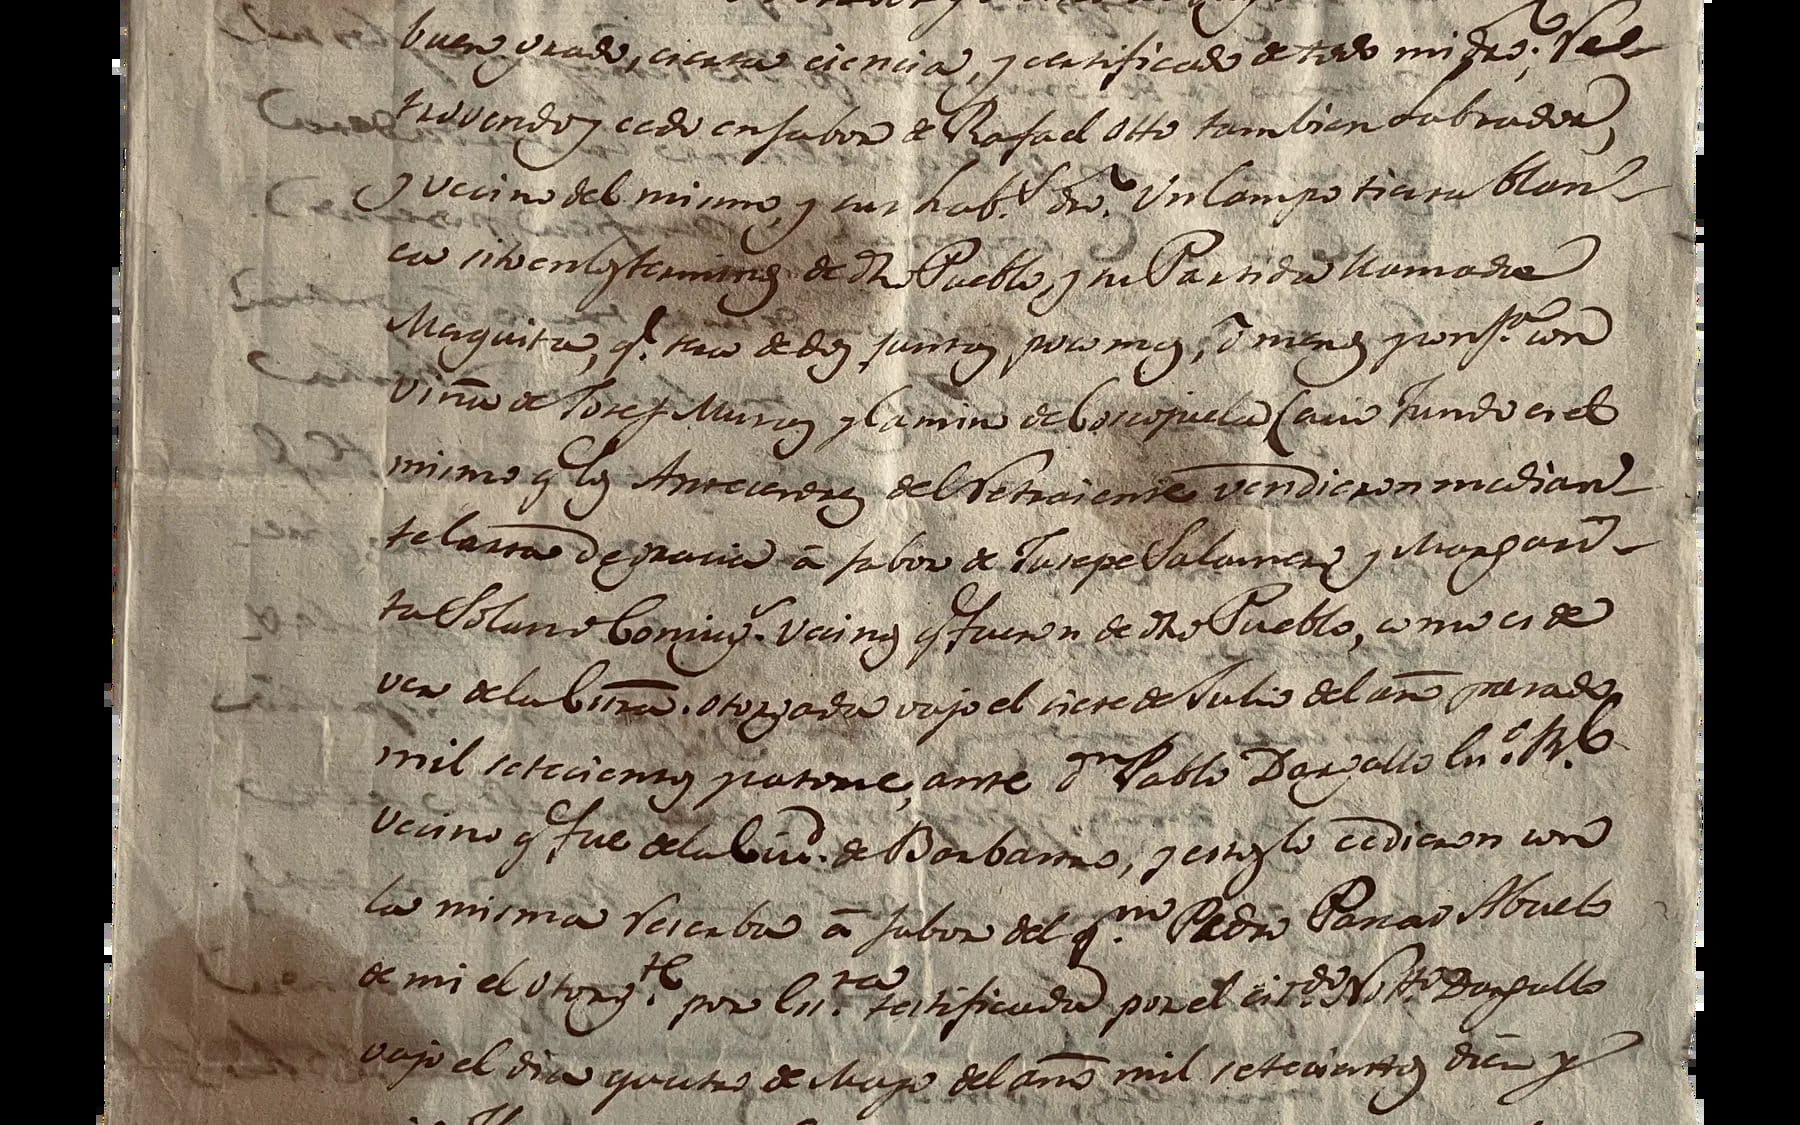 buen grado, cierta ciencia, y certificado de todo mi dro; Re-
trovendo y cedo en fabor de Rafael Otto tambien Labrador,
y vecino del mismo, y sus hab.s dro. Un Campo tierra blan-
ca sito en los terminos de dho Pueblo, y su Partida llamada
q.e sera de dos juntas poco mas, ò menos y conf.ta con
viña de Josef Muzas y Camino de Coscojuela (cuio fundo es el
mismo q los Antecesores del Retraiente vendieron median-
te Carta de gracia â fabor de Jusepe Salamero y Margari-
ta Solano Coniug.s Vecinos q fueron de dho Pueblo, como es de
ver de la Escra. otorgada vajo el siete de Julio del año pasado
mil setecientos y catorce, ante dn Pablo Dargallo Es.o R.l
Vecino q fue de la Ciud. de Barbastro, y estos lo cedieron con
la misma reserba â fabor del q.m Pedro Panzano Abuelo
de mi el otorg.te por Es.ra testificada por el cit.do Not.o Dargallo
vajo el dia quatro de Mayo del año mil setecientos diez y